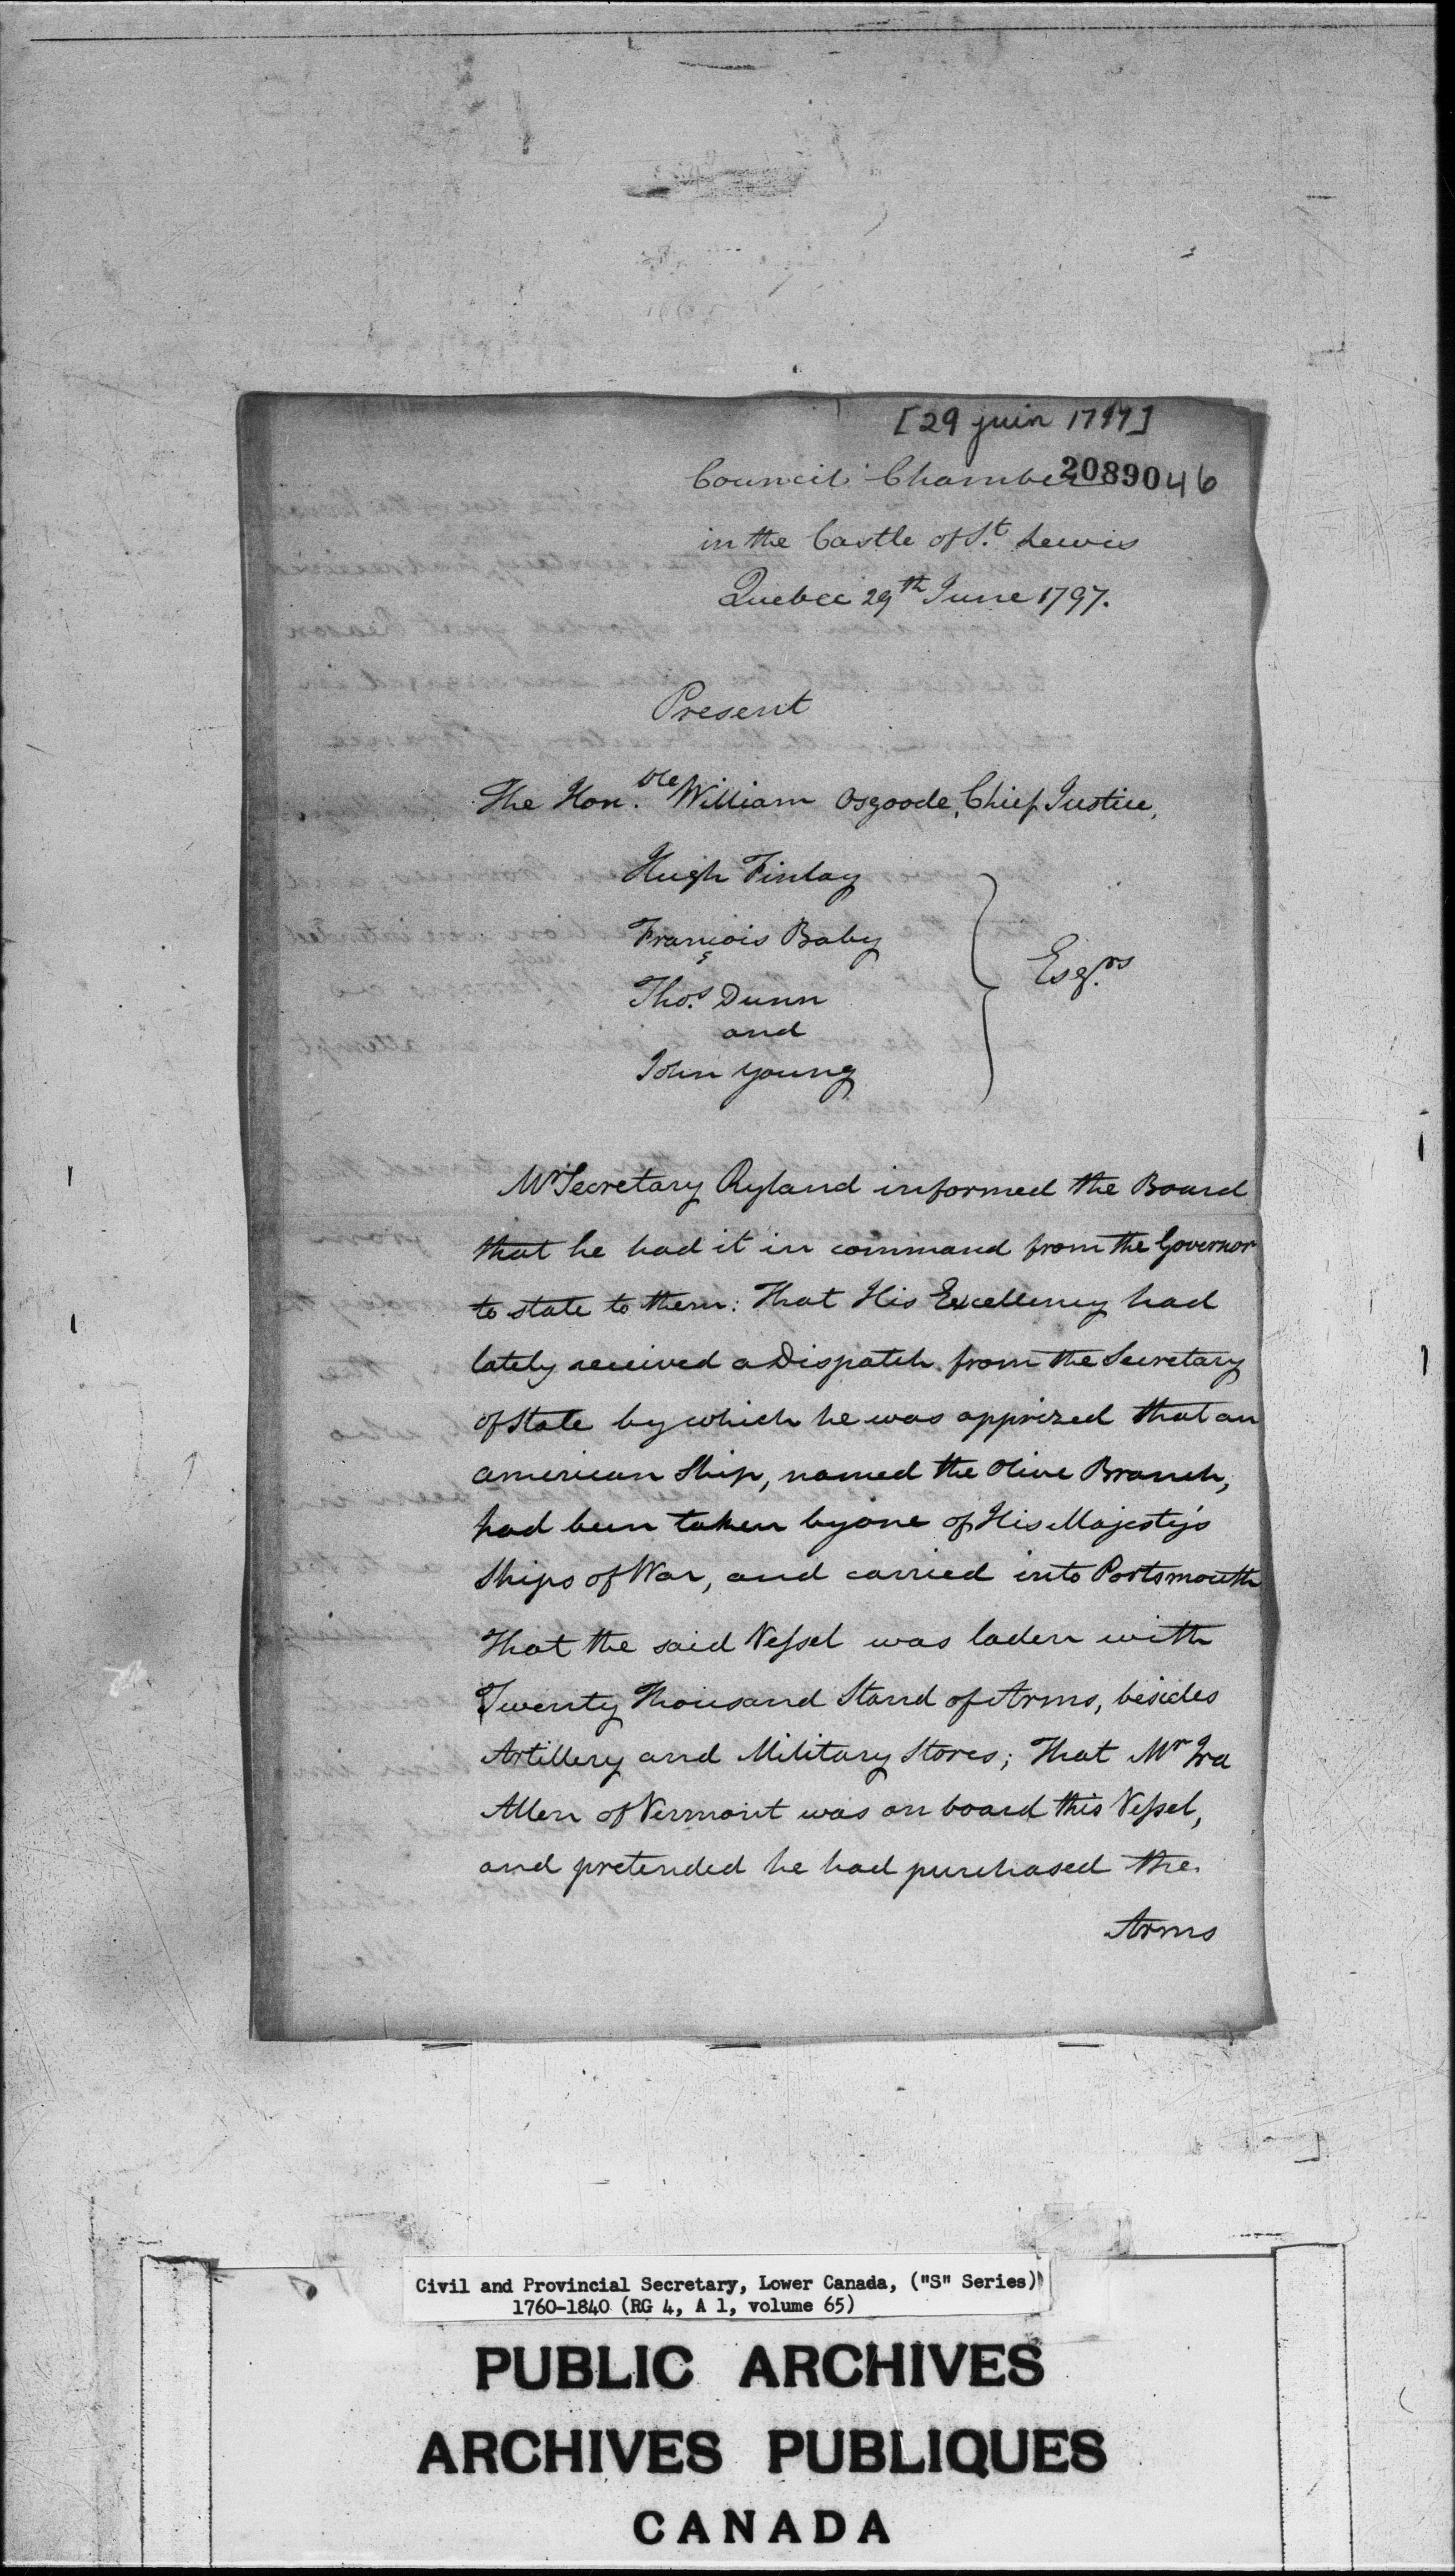 [29 juin 1797]
Council Chamber 2089046
in the Castle of St. Lewis
Quebec 29th June 1797.
Present
The Hon.ble William Osgoode, Chief Justice,
Hugh Finlay
François Baby
Thos. Dunn
and
John Young
Esqrs
Mr Secretary Ryland informed the Board
that he had it in command from the Governor
to state to them: That His Excellency had
lately received a Dispatch from the Secretary
of State by which he was apprized that an
american Ship, named the Olive Branch,
had been taken by one of His Majesty's
Ships of War, and carried into Portsmouth
That the said Vessel was laden with
Twenty Thousand Stand of Arms, besides
Artillery and Military Stores; That Mr Ira
Allen of Vermont was on board this Vessel,
and pretended he had purchased the
Arms
Civil and Provincial Secretary, Lower Canada, ("S" Series)
1760-1840 (RG 4, A 1, volume 65)
PUBLIC ARCHIVES
ARCHIVES PUBLIQUES
CANADA